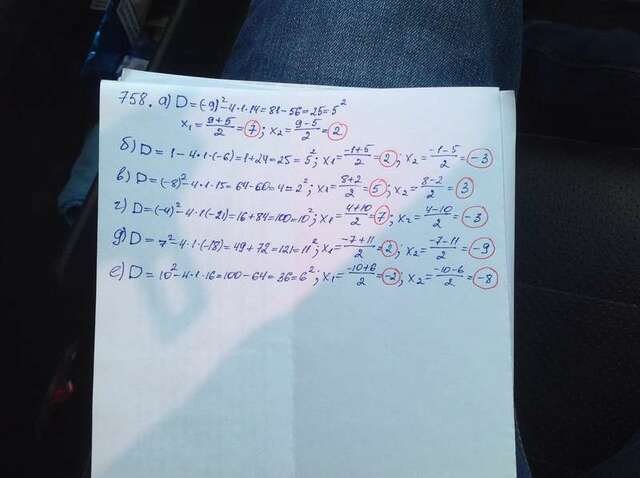 758. а) D = (-9)² - 4·1·14 = 81 - 56 = 25 = 5²
x₁ = (9+5)/2 = 7; x₂ = (9-5)/2 = 2
б) D = 1 - 4·1·(-6) = 1 + 24 = 25 = 5²; x₁ = (-1+5)/2 = 2; x₂ = (-1-5)/2 = -3
в) D = (-8)² - 4·1·15 = 64 - 60 = 4 = 2²; x₁ = (8+2)/2 = 5; x₂ = (8-2)/2 = 3
г) D = (-4)² - 4·1·(-21) = 16 + 84 = 100 = 10²; x₁ = (4+10)/2 = 7; x₂ = (4-10)/2 = -3
д) D = 7² - 4·1·(-18) = 49 + 72 = 121 = 11²; x₁ = (-7+11)/2 = 2; x₂ = (-7-11)/2 = -9
е) D = 10² - 4·1·16 = 100 - 64 = 36 = 6²; x₁ = (-10+6)/2 = -2; x₂ = (-10-6)/2 = -8